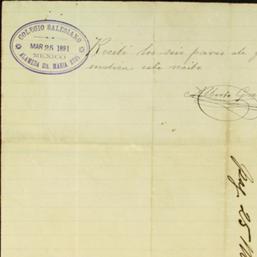 COLEGIO SALESIANO
MAR 25 1891
MEXICO
ALAMEDA STA. MARIA
Recibí los seis pares de
indica este recibo
Alberto
25